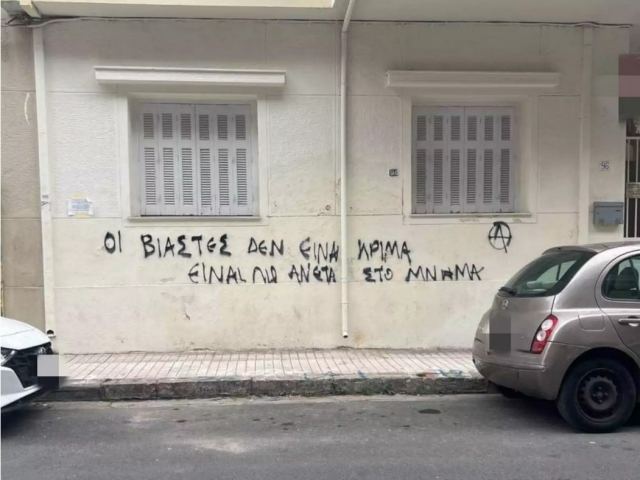 ΟΙ ΒΙΑΣΤΕΣ ΔΕΝ ΕΙΝΑΙ ΚΡΙΜΑ
ΕΙΝΑΙ ΠΙΟ ΑΝΕΤΑ ΣΤΟ ΜΝΗΜΑ